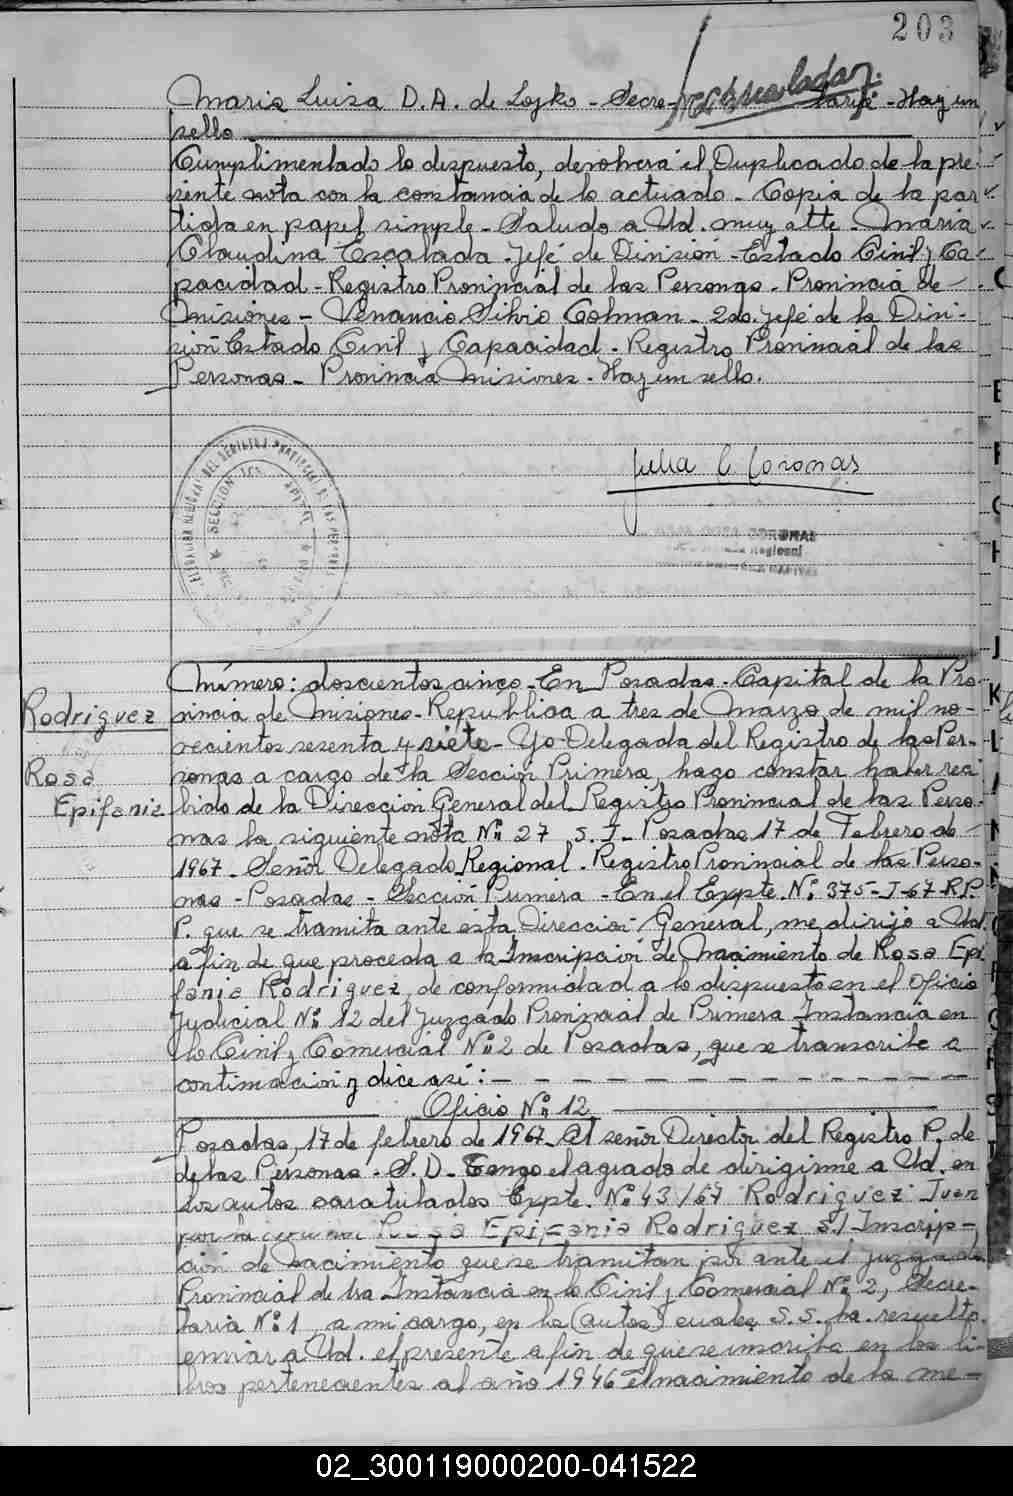 203
Maria Luisa D. A. de Lojko - Secre- - Hay un
sello
Cumplimentado lo dispuesto, devolverá el Duplicado de la pre-
sente nota con la constancia de lo actuado - Copia de la par
tida en papel simple - Saludo a Ud. muy atte - Maria
Claudina Escalada - Jefe de División - Estado Civil y Ca-
pacidad - Registro Provincial de las Personas - Provincia de
Misiones - Venancio Silvio Colman - 2do. Jefe de la Divi-
sión Estado Civil y Capacidad - Registro Provincial de las
Personas - Provincia Misiones - Hay un sello.
Julia C Coronas
SECCION
Regional
Rodriguez
Rosa
Epifania
Número: doscientos cinco - En Posadas - Capital de la Pro
vincia de Misiones - Republica a tres de Marzo de mil no-
vecientos sesenta y siete - Yo Delegada del Registro de las Per-
sonas a cargo de la Sección Primera, hago constar haber reci
bido de la Dirección General del Registro Provincial de las Perso-
nas la siguiente nota Nº 27 S. J - Posadas 17 de Febrero de
1967 - Señor Delegado Regional - Registro Provincial de las Perso-
nas - Posadas - Sección Primera - En el Expte. Nº 375-J-67-R.P.
P. que se tramita ante esta Dirección General, me dirijo a Ud.
a fin de que proceda a la Inscripción de Nacimiento de Rosa Epi
fania Rodriguez, de conformidad a lo dispuesto en el Oficio
Judicial Nº 12 del Juzgado Provincial de Primera Instancia en
lo Civil y Comercial Nº 2 de Posadas, que se transcribe a
continuación y dice así: - - - - - - - - - - -
Oficio Nº 12
Posadas, 17 de febrero de 1967 - Al señor Director del Registro P. de
de las Personas - S. D - Tengo el agrado de dirigirme a Ud. en
los autos caratulados Expte. Nº 43/67 Rodriguez Juan
por Rosa Epifania Rodriguez s/ Inscrip-
ción de Nacimiento que se tramitan por ante el juzgado
Provincial de 1ra Instancia en lo Civil y Comercial Nº 2, Secre-
taria Nº 1 a mi cargo, en los (autos) cuales S.S. ha resuelto
enviar a Ud. el presente a fin de que se inscriba en los li-
bros pertenecientes al año 1946 el nacimiento de la me-
02_300119000200-041522